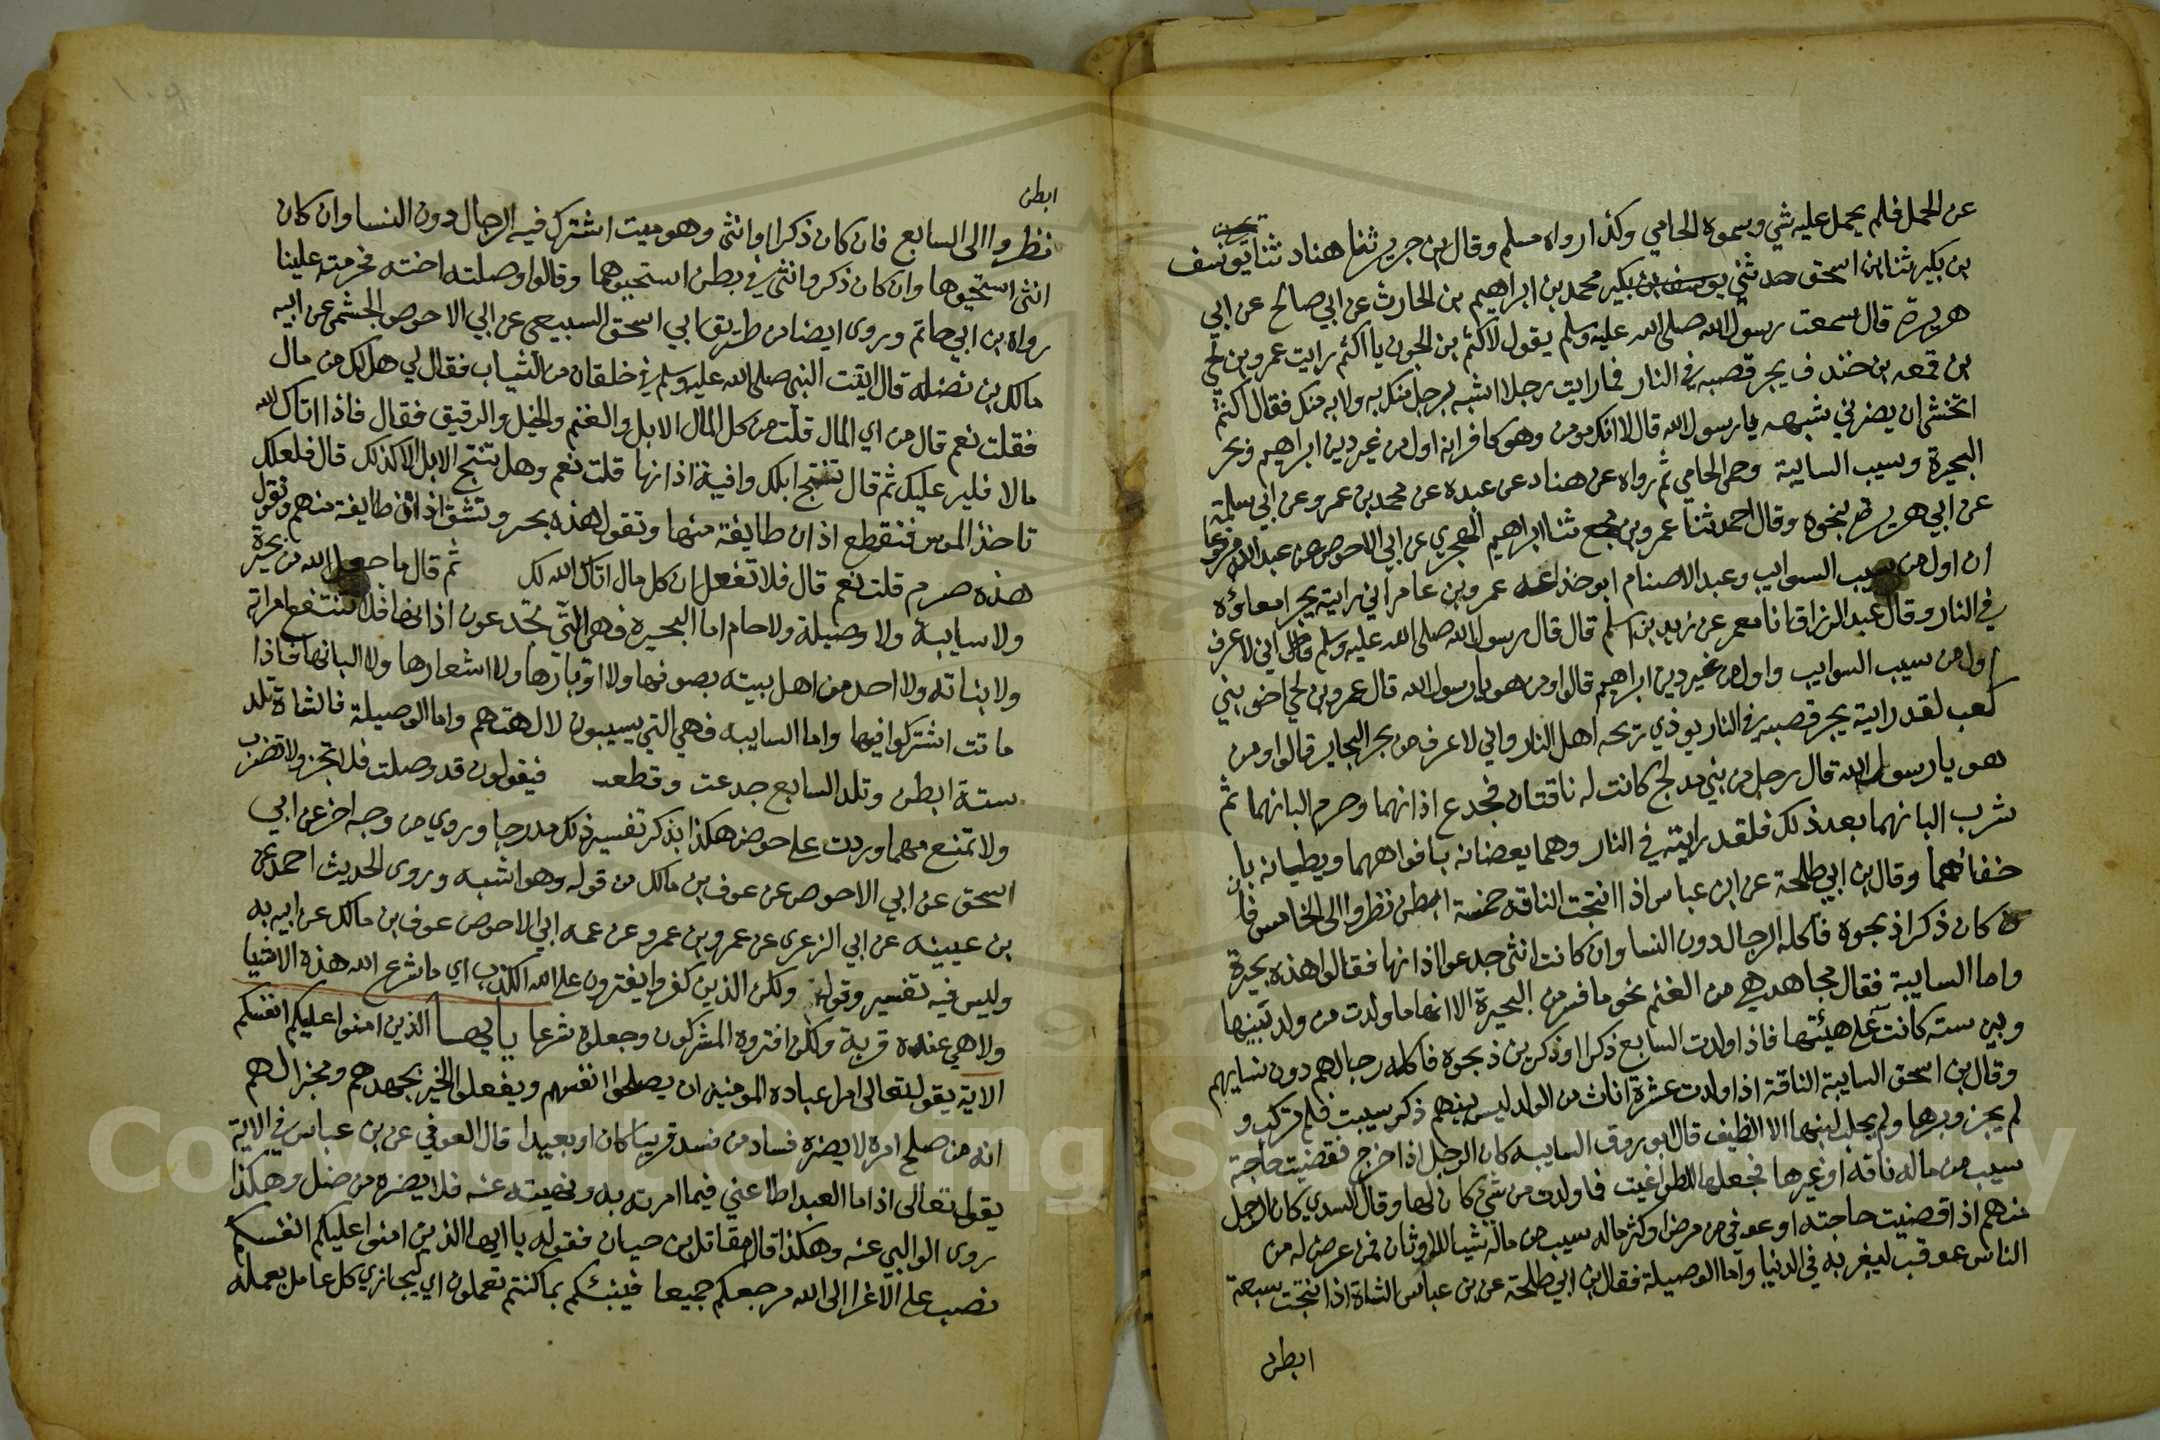 عن الحمل فلم يحمل عليه شي ويسموه الحامي وكذا رواه مسلم وقال ابن جرير ثنا هناد ثنا يونس
بن بكير ثنا ابن اسحق حدثني يوسف بن بكير محمد بن ابراهيم بن الحارث عن ابي صالح عن ابي
هريرة قال سمعت رسول الله صلى الله عليه وسلم يقول لاكثم بن الجون يا اكثم رايت عمرو بن لحي
بن قمعه بن خندف يجر قصبه في النار فما رايت رجلا اشبه برجل منك به ولا به منك فقال اكثم
اتخشى ان يضرني شبهه يا رسول الله قال لا انك مومن وهو كافر انه اول من غير دين ابراهيم وبحر
البحيرة وسيب السايبة وحمى الحامي ثم رواه عن هناد عن عبده عن محمد بن عمرو عن ابي سلمة
عن ابي هريرة بنحوه وقال احمد ثنا عمرو بن مجمع ثنا ابراهيم الهجري عن ابي الاحوص عن عبد الله مرفوعا
ان اول من سيب السوايب وعبد الاصنام ابو خذاعه عمرو بن عامر اني رايته يجر امعاؤه
في النار وقال عبد الرزاق انا معمر عن زيد بن اسلم قال قال رسول الله صلى الله عليه وسلم اني لاعرف
اول من سيب السوايب واول من غير دين ابراهيم قالوا من هو يا رسول الله قال عمرو بن لحي اخو بني
كعب لقد رايته يجر قصبه في النار يوذي ريحه اهل النار واني لاعرف من بحر البحاير قالوا ومن
هو يا رسول الله قال رجل من بني مدلج كانت له ناقتان فجدع اذانهما وحرم البانهما ثم
شرب البانهما بعد ذلك فلقد رايته في النار وهما يعضانه بافواههما ويطيانه با
خفافهما وقال بن ابي طلحة عن ابن عباس اذا انتجت الناقه خمسة ابطن نظروا الى الخامس فان
كان ذكرا ذبحوه فاكله الرجال دون النسا وان كانت انثى جدعوا اذانها فقالوا هذه بحيرة
واما السايبة فقال مجاهد هي من الغنم نحو ما فسر من البحيرة الا انها ما ولدت من ولد بينها
وبين سته كانت على هيئتها فاذا ولدت السابع ذكرا او ذكرين ذبحوه فاكله رجالهم دون نسايهم
وقال بن اسحق السايبة الناقة اذا ولدت عشرة اناث من الولد ليس بينهم ذكر سيبت فلم تركب و
لم يجز وبرها ولم يحلب لبنها الا لضيف قال ابو روق السايبه كان الرجل اذا خرج فقضيت حاجته
سيب من ماله ناقه او غيرها فجعلها للطواغيت فما ولدت من شي كان لها وقال السدي كان الرجل
منهم اذا قضيت حاجته او عوفي من مرض او كثر ماله سيب من ماله شيا للاوثان فمن عرض له من
الناس عوقب ليغربه في الدنيا واما الوصيلة فقال بن ابي طلحة عن بن عباس الشاة اذا نتجت سبعة
ابطن
ابطن
نظروا الى السابع فان كان ذكرا او انثى وهو ميت اشترك فيه الرجال دون النسا وان كان
انثى استحيوها وان كان ذكر وانثى في بطن استحيوهما وقالوا وصلته اخته فحرمته علينا
رواه بن ابي حاتم وروى ايضا من طريق ابي اسحق السبيعي عن ابي الاحوص الجشمي عن ابيه
مالك بن نضله قال اتيت النبي صلى الله عليه وسلم في خلقان من الثياب فقال لي هل لك من مال
فقلت نعم قال من اي المال قلت من كل المال الابل والغنم والخيل والرقيق فقال فاذا اتاك الله
مالا فلير عليك ثم قال تنتج ابلك وافية اذانها قلت نعم وهل تنتج الابل الا كذلك قال فلعلك
تاخذ الموس فتقطع اذان طايفة منها وتقول هذه بحر وتشق اذان طايفة منهم وتقول
هذه صرم قلت نعم قال فلا تفعل ان كل مال اتاك الله لك ثم قال ما جعل الله من بحيرة
ولا سايبة ولا وصيلة ولا حام اما البحيرة فهي التي تجدعون اذانها فلا تنتفع امراته
ولا بناته ولا احد من اهل بيته بصوفها ولا اوبارها ولا اشعارها ولا البانها فاذا
ماتت اشتركوا فيها واما السايبه فهي التي يسيبون لالهتهم واما الوصيلة فالشاة تلد
ستة ابطن وتلد السابع جدعت وقطعـ فيقولون قد وصلت فلا تجز ولا تضرب
ولا تمنع مهما وردت على حوض هكذا بذكر تفسير ذلك مدرجا وروي من وجه اخر عن ابي
اسحق عن ابي الاحوص عن عوف بن مالك من قوله وهو اشبه وروى الحديث احمد عن
بن عيينه عن ابي الزعرى عن عمرو بن عمرو عن عمه ابي الاحوص عوف بن مالك عن ابيه به
وليس فيه تفسير وقوله ولكن الذين كفروا يفترون على الله الكذب اي ما شرع الله هذه الاشيا
ولا هي عنده قربة ولكن افتروه المشركون وجعلوه شرعا يا ايها الذين امنوا عليكم انفسكم
الاية يقول تعالى امرا عباده المومنين ان يصلحوا انفسهم ويفعلوا الخير بجهدهم ومخبرا لهم
انه من صلح امره لا يضره فساد من فسد قريبا كان او بعيدا قال العوفي عن بن عباس في الاية
يقول تعالى اذا ما العبد اطاعني فيما امرته به ونهيته عنه فلا يضره من ضل وهكذا
روى الوالبي عنه وهكذا قال مقاتل بن حيان فقوله يا ايها الذين امنوا عليكم انفسكم
نصب على الاغرا الى الله مرجعكم جميعا فينبئكم بما كنتم تعملون اي ليجازي كل عامل بعمله
Copyright © King Saud University